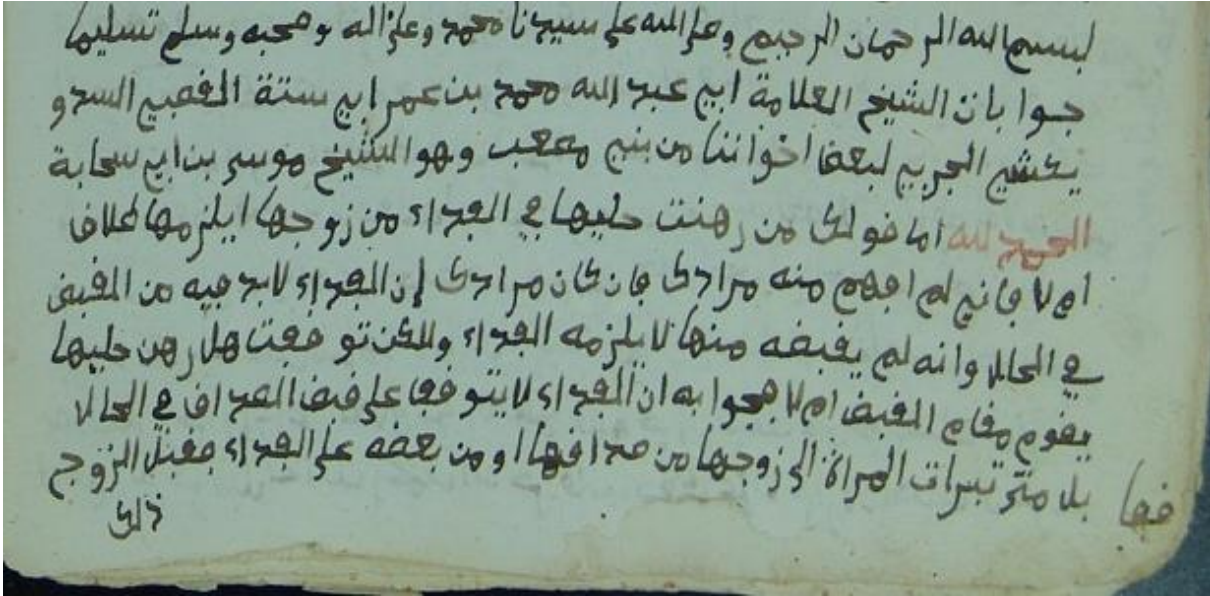 بسم الله الرحمان الرحيم وصلى الله على سيدنا محمد وعلى اله وصحبه وسلم تسليما
جوابات الشيخ العلامة ابي عبد الله محمد بن عمر ابي ستة القصبي السدو
يكشي الجربي لبعض اخواننا من بني مصعب وهو الشيخ موسى بن ابي سحابة
الحمد لله اما قولك من رهنت حليها في الفداء من زوجها ايلزمها طلاق
ام لا فاني لم افهم منه مرادك فان كان مرادك ان الفداء لابد فيه من القبض
في الحال وانه لم يقبضه منها لا يلزمه الفداء ولكن توقفت هل رهن حليها
يقوم مقام القبض ام لا فجوابه ان الفداء لا يتوقف على قبض الصداق في الحال
بل متى تبرات المراة الى زوجها من صداقها او من بعضه على الفداء فقبل الزوج
ذلك
قف